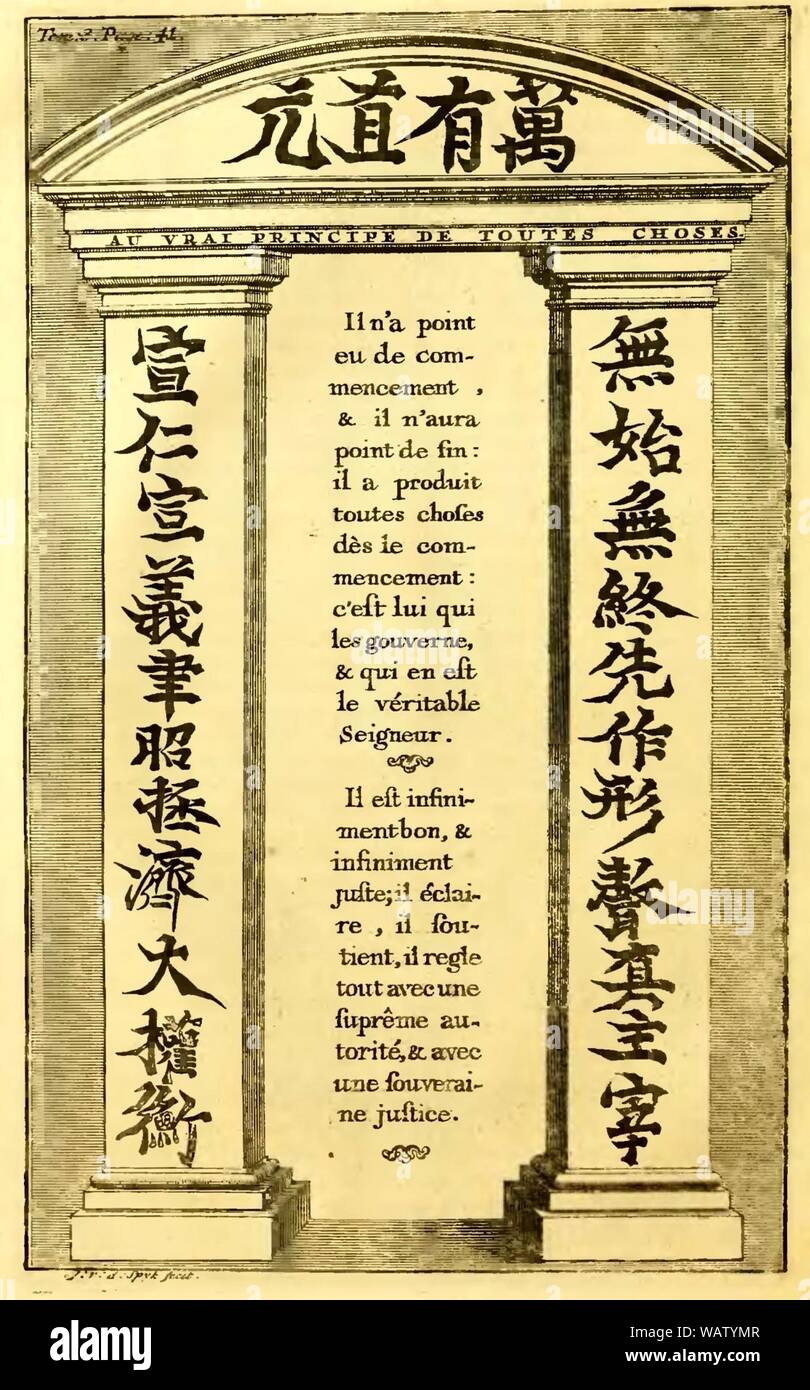 Tom. 3. Page. 41.
萬有直元
AU VRAI PRINCIPE DE TOUTES CHOSES.
無始無終先作形聲真主宰
宣仁宣義聿昭拯濟大權衡
Il n'a point
eu de com-
mencement,
& il n'aura
point de fin:
il a produit
toutes choſes
dès le com-
mencement:
c'eſt lui qui
les gouverne,
& qui en eſt
le véritable
Seigneur.
Il eſt infini-
ment bon, &
infiniment
juſte; il éclai-
re, il ſou-
tient, il regle
tout avec une
ſuprême au-
torité, & avec
une ſouverai-
ne juſtice.
J. v. d. Spyk fecit.
alamy
alamy
Image ID: WATYMR
www.alamy.com